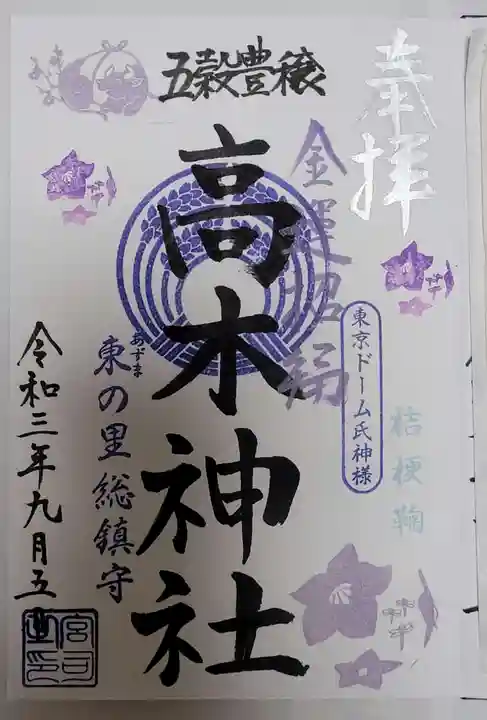 奉拝
五穀豊穣
金運招福
高木神社
東京ドーム氏神様
桔梗鞠
あずま
東の里総鎮守
令和三年九月五日
宮司
之印